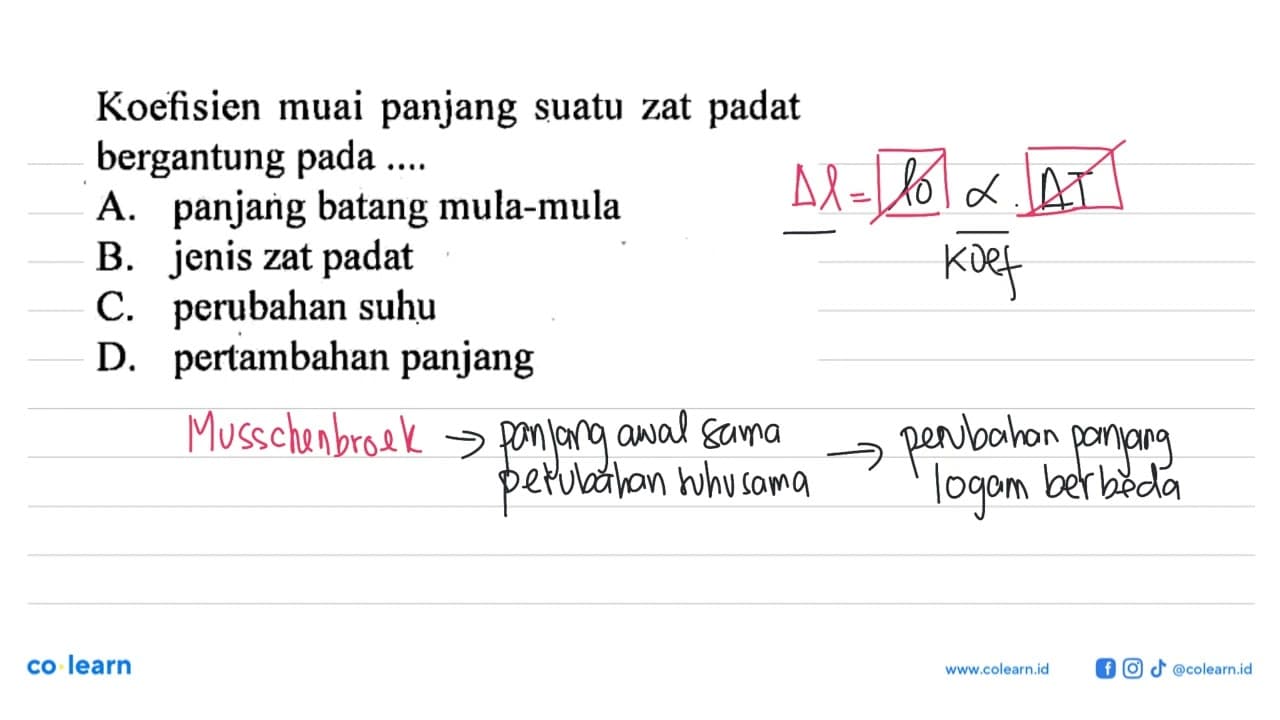 Koefisien muai panjang suatu zat padat
bergantung pada ....
A. panjang batang mula-mula
B. jenis zat padat
C. perubahan suhu
D. pertambahan panjang
Δl = l0 α . ΔT
Koef
Musschenbroek → panjang awal sama
perubahan suhu sama
→ perubahan panjang
logam berbeda
co learn
www.colearn.id
@colearn.id